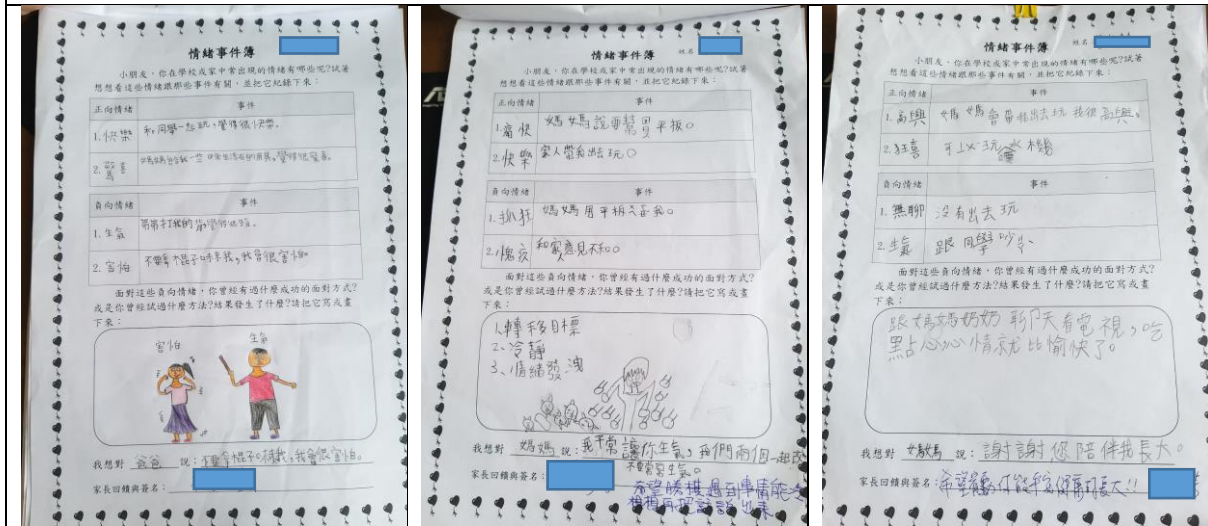 情緒事件簿
小朋友，你在學校或家中常出現的情緒有哪些呢？試著
想想看這些情緒跟那些事件有關，並把它紀錄下來：
正向情緒 事件
1. 快樂 和同學一起玩，覺得很快樂。
2. 驚喜
負向情緒 事件
1. 生氣
2. 害怕 不要拿棍子 我，我會很害怕
面對這些負向情緒，你曾經有過什麼成功的面對方式？
或是你曾經試過什麼方法？結果發生了什麼？請把它寫或畫
下來：
害怕 生氣
我想對 爸爸 說：不要拿棍子 我，我會很害怕。
家長回饋與簽名：
情緒事件簿 姓名
小朋友，你在學校或家中常出現的情緒有哪些呢？試著
想想看這些情緒跟那些事件有關，並把它紀錄下來：
正向情緒 事件
1. 痛快 媽媽說要幫 買平板。
2. 快樂 家人帶我出去玩。
負向情緒 事件
1. 抓狂 媽媽用平板
2. 意見不和。
面對這些負向情緒，你曾經有過什麼成功的面對方式？
或是你曾經試過什麼方法？結果發生了什麼？請把它寫或畫
下來：
1、轉移目標
2、冷靜
3、情緒發洩
我想對 媽媽 說：我平常讓你生氣，我們兩個一起改
不要常常生氣。
家長回饋與簽名：
希望 遇到事情能
想想再把話說出來
情緒事件簿 姓名
小朋友，你在學校或家中常出現的情緒有哪些呢？試著
想想看這些情緒跟那些事件有關，並把它紀錄下來：
正向情緒 事件
1. 高興 媽媽會帶我出去玩我很高興。
2. 狂喜 可以玩 機
負向情緒 事件
1. 無聊 沒有出去玩
2. 生氣 跟同學吵
面對這些負向情緒，你曾經有過什麼成功的面對方式？
或是你曾經試過什麼方法？結果發生了什麼？請把它寫或畫
下來：
跟媽媽奶奶聊天看電視，吃
點心心情就比愉快了。
我想對 媽媽 說：謝謝您陪伴我長大。
家長回饋與簽名：希望 長大!!